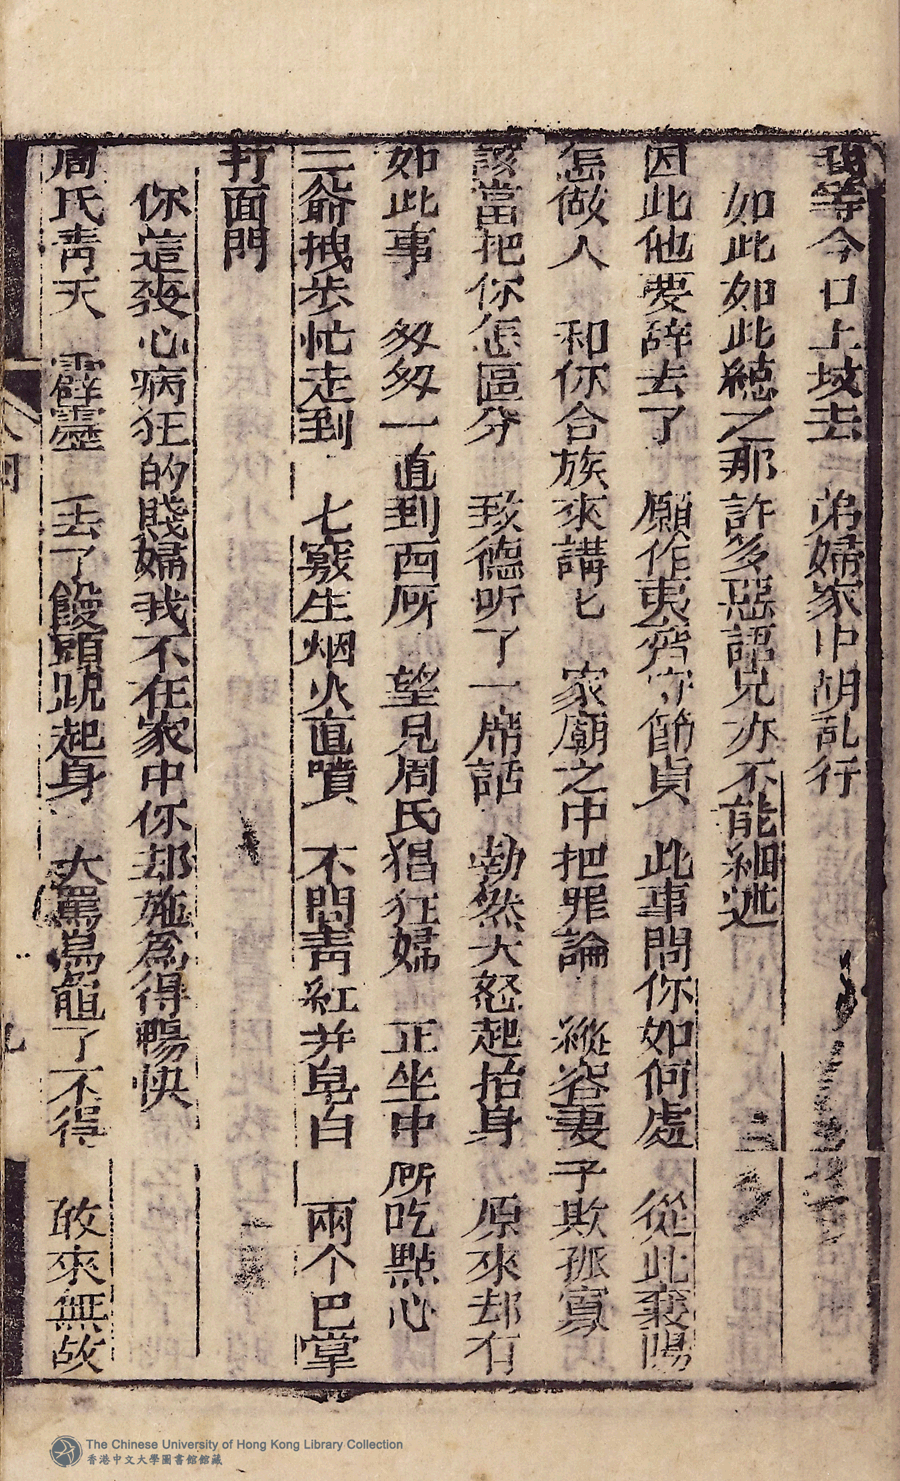 我等今日上坟去　弟婦家中胡乱行
如此如此緫之那許多惡語兄亦不能細述
因此他要辞去了　願作夷齊守節貞　此事問你如何處　從此襄陽
怎做人　和你合族來講匕　家廟之中把罪論　縱容妻子欺孤寡
該當把你怎區分　致德听了一席話　勃然大怒起抬身　原來却有
如此事　匆匆一直到西厛　望見周氏猖狂婦　正坐中厛吃點心
二爺拽步忙走到　七竅生烟火直噴　不問青紅并皁白　兩个巴掌
打面門
你這喪心病狂的賤婦我不在家中你却施爲得暢快
周氏靑天　霹靂　丢了饅頭跳起身　大罵烏龜了不得　敢來無故
The Chinese University of Hong Kong Library Collection
香港中文大學圖書館館藏